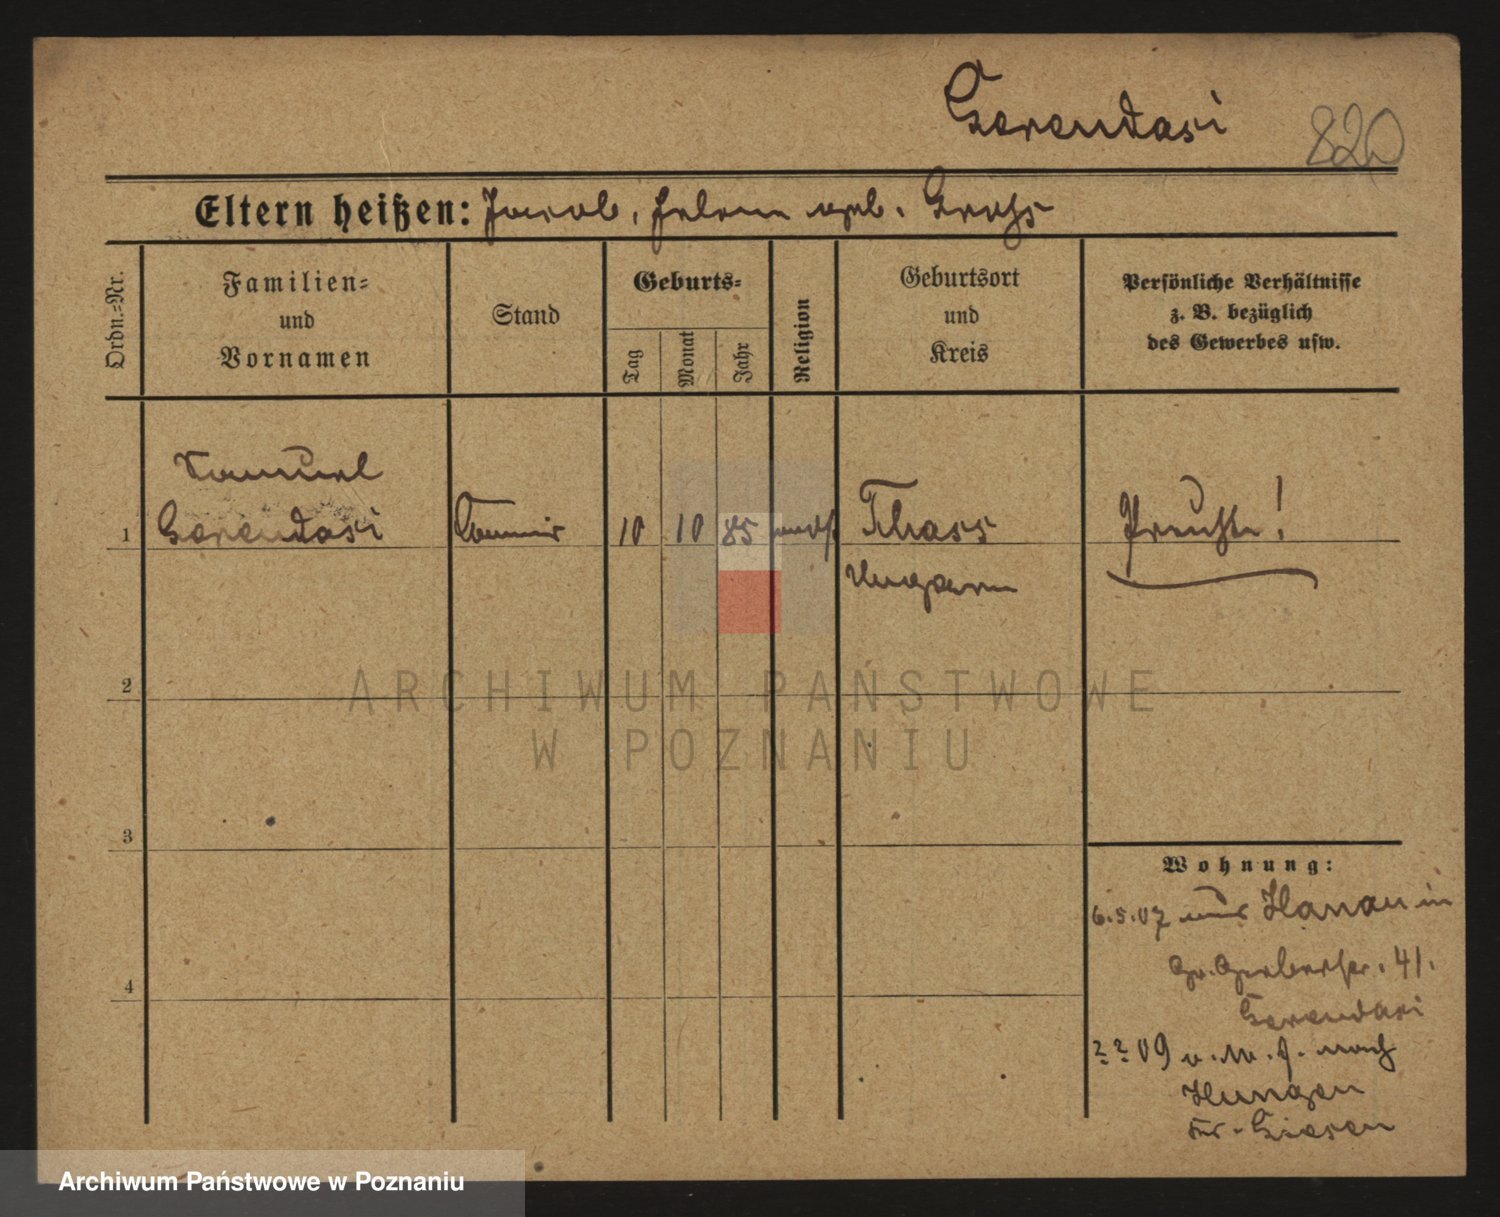 Gerendasi
820
Eltern heißen: Jacob, Helene geb. Gross
Ordn.=Nr.
Familien=
und
Vornamen
Stand
Geburts=
Tag
Monat
Jahr
Religion
Geburtsort
und
Kreis
Persönliche Verhältnisse
z. B. bezüglich
des Gewerbes usw.
Samuel
1 Gerendasi Commis 10 10 85 mos Thass
Ungarn
2
ARCHIWUM PAŃSTWOWE
W POZNANIU
3
Wohnung:
6.5.07 aus Hanau in
Gr. Gerberstr. 41.
Gerendasi
2 2 09 nach
Hungen
Kr. Giesen
4
Archiwum Państwowe w Poznaniu